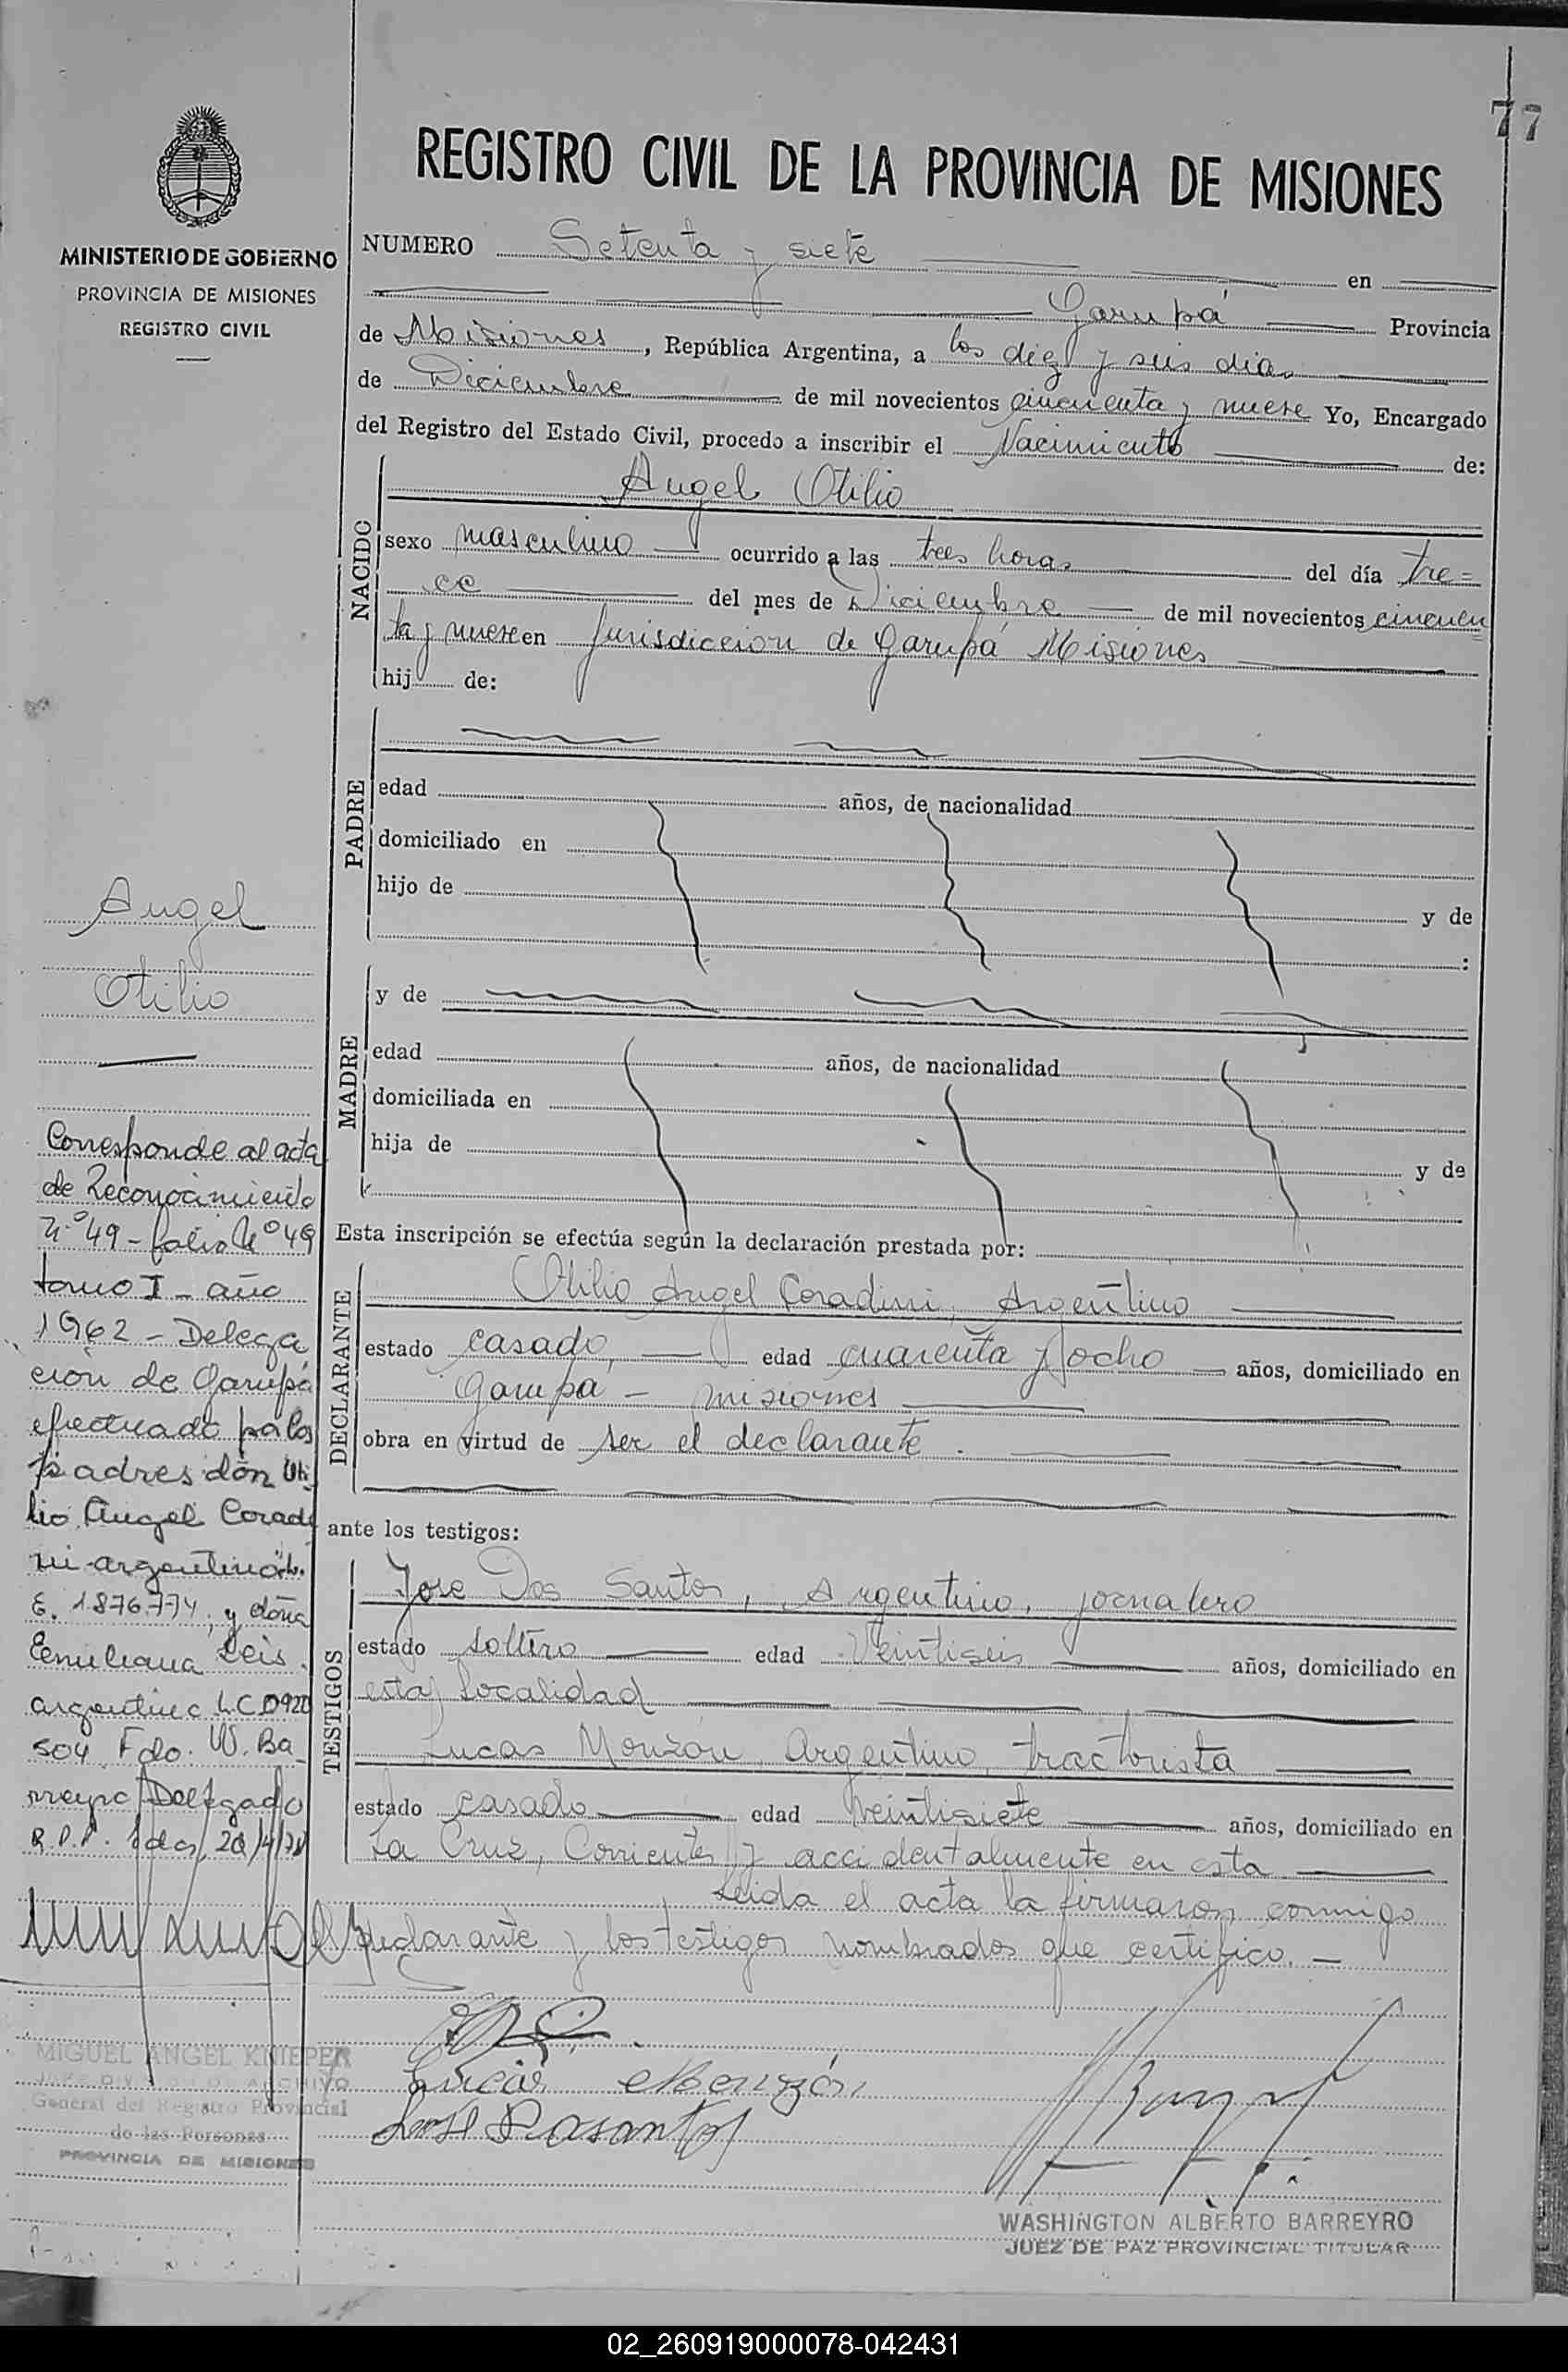 77
REGISTRO CIVIL DE LA PROVINCIA DE MISIONES
MINISTERIO DE GOBIERNO
PROVINCIA DE MISIONES
REGISTRO CIVIL
NUMERO Setenta y siete en
Garupá Provincia
de Misiones, República Argentina, a los diez y seis dias
de Diciembre de mil novecientos cincuenta y nueve Yo, Encargado
del Registro del Estado Civil, procedo a inscribir el Nacimiento de:
NACIDO
Angel Otilio
sexo masculino ocurrido a las tres horas del día tre=
ce del mes de Diciembre de mil novecientos cincuen
ta y nueve en Jurisdiccion de Garupá Misiones
hij de:
PADRE
edad años, de nacionalidad
domiciliado en
hijo de y de
:
MADRE
y de
edad años, de nacionalidad
domiciliada en
hija de y de
Esta inscripción se efectúa según la declaración prestada por:
DECLARANTE
Otilio Angel Coradini, Argentino
estado casado, edad cuarenta y ocho años, domiciliado en
Garupá - misiones
obra en virtud de ser el declarante.
ante los testigos:
TESTIGOS
Jose Dos Santos, Argentino, jornalero
estado soltero edad Veintiseis años, domiciliado en
esta localidad
Lucas Monzón, Argentino, tractorista
estado casado edad veintisiete años, domiciliado en
La Cruz, Corrientes y accidentalmente en esta
Leida el acta la firmaron conmigo
el declarante y los testigos nombrados que certifico. -
Lucas Monzón
José Dosantos
WASHINGTON ALBERTO BARREYRO
JUEZ DE PAZ PROVINCIAL TITULAR
Angel
Otilio
Corresponde al acta
de Reconocimiento
Nº 49 - folio Nº 49
tomo I - año
1962 - Delega
ción de Garupá
efectuado por los
padres don Oti
lio Angel Coradi
ni argentino L.
E. 1.876.774, y doña
Emiliana Leis
argentina L.C 0920
504 Fdo. W. Ba
rreyro Delegado
R.P.P.
MIGUEL ANGEL KNIEPER
JEFE DIVISION DE ARCHIVO
General del Registro Provincial
de las Personas
PROVINCIA DE MISIONES
02_260919000078-042431